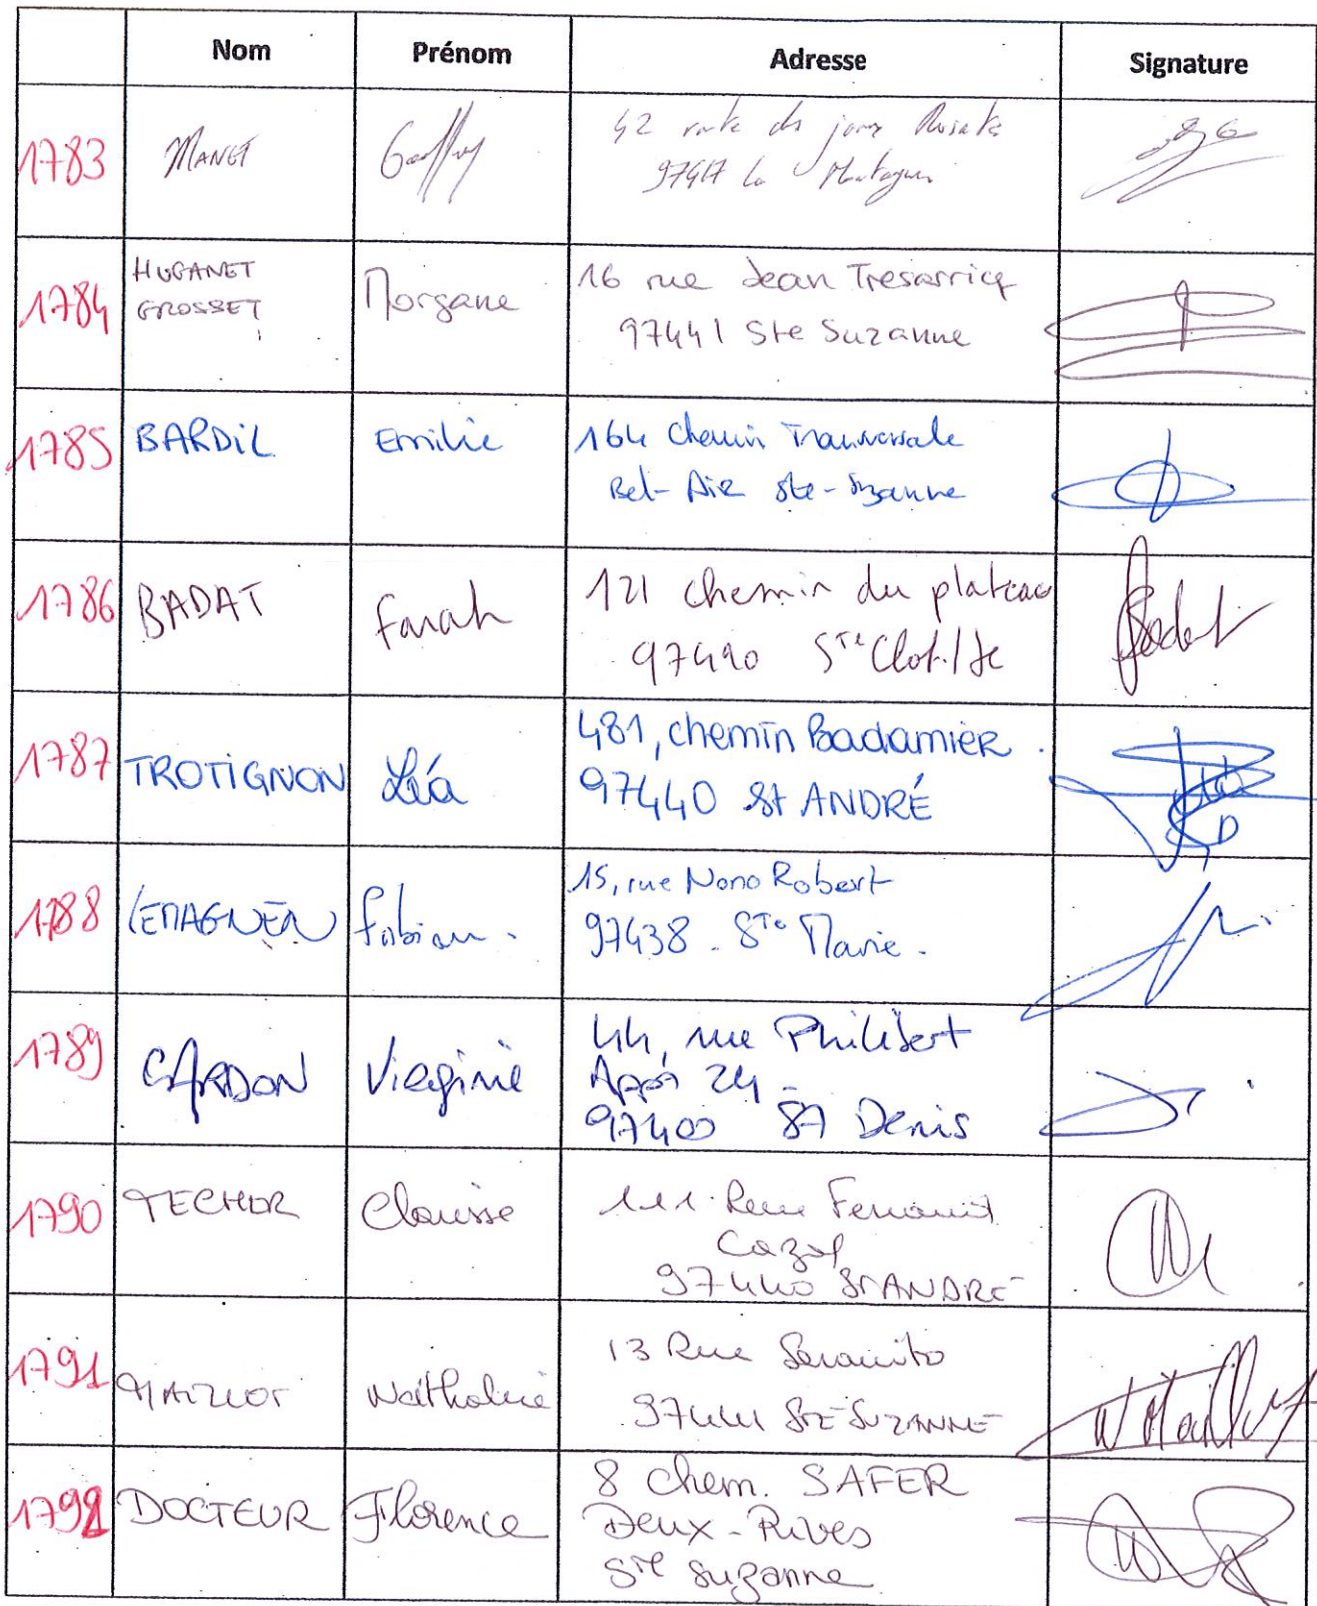 Nom Prénom Adresse Signature
1783 MANET Geoffroy 42 route des
97417 La Montagne
1784 HUGANET Morgane 16 rue Jean Tresarricq
GROSSET 97441 Ste Suzanne
1785 BARDIL Emilie 164 Chemin Transversale
Bel-Air Ste-Suzanne
1786 BADAT Farah 121 chemin du plateau
97490 Ste Clotilde
1787 TROTIGNON Léa 481, chemin Badamier
97440 St ANDRÉ
1788 LEMAGNEN Fabian. 15, rue Nono Robert
97438 - Ste Marie.
1789 CARDON Virginie 44, rue Philibert
24
97400 St Denis
1790 TECHER Clarisse 111 Rue
Cazal
97440 St ANDRE
1791 Nathalie 13 Rue
97441 STE SUZANNE
1792 DOCTEUR Florence 8 Chem. SAFER
Deux-Rives
Ste Suzanne